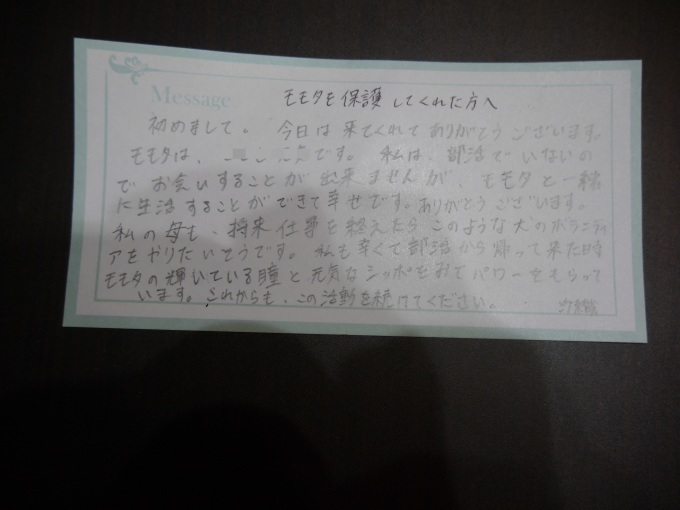 Message
モモタを保護してくれた方へ
初めまして。 今日は来てくれてありがとうございます。
モモタは、 です。 私は、部活でいないの
でお会いすることが出来ませんが、モモタと一緒
に生活することができて幸せです。ありがとうございます。
私の母も、将来仕事を終えたらこのような犬のボランティ
アをやりたいそうです。私も辛くて部活から帰って来た時
モモタの輝いている瞳と元気なシッポをみてパワーをもらって
います。これからも、この活動を続けてください。